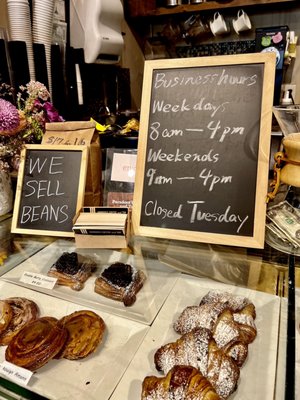 Business hours
Weekdays
8am — 4pm
Weekends
9am — 4pm
Closed Tuesday
WE
SELL
BEANS